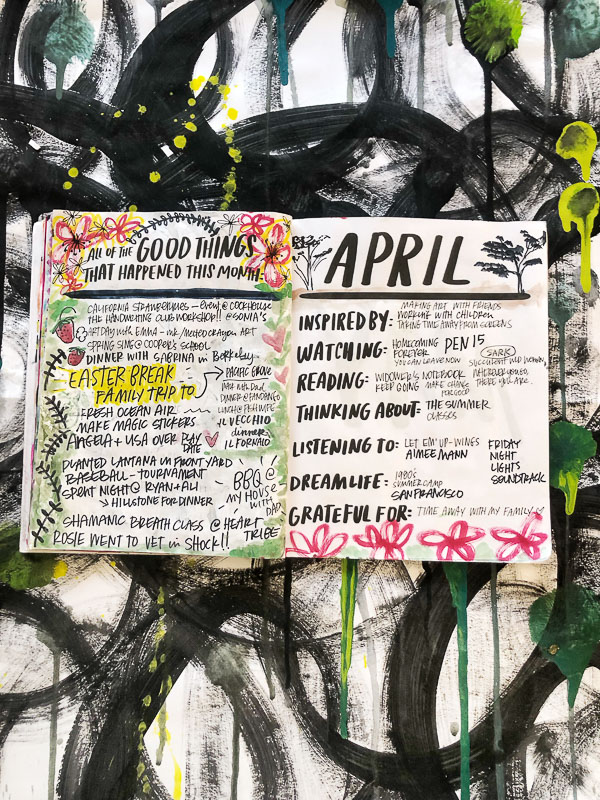 ALL OF THE GOOD THINGS
THAT HAPPENED THIS MONTH-
CALIFORNIA STRAWBERRIES - EVENT @ COOKHOUSE
THE HANDWRITING CLUB WORKSHOP!! @ SONIA'S
ART DAY WITH EMMA - ART
SPRING SING @ COOPER'S SCHOOL
DINNER WITH SABRINA in Berkeley
EASTER BREAK
FAMILY TRIP TO
PACIFIC GROVE
PARK with Dad
DINNER @ FANDANGO
LUNCH @ FISHWIFE
IL VECCHIO
dinner
IL FORNAIO
FRESH OCEAN AIR
MAKE MAGIC STICKERS
ANGELA + LISA OVER PLAY
DATE
PLANTED LANTANA in FRONT YARD
BASEBALL - TOURNAMENT
SPENT NIGHT @ RYAN + ALI
HILLSTONE FOR DINNER
BBQ @
MY HOUSE
WITH
DAD
SHAMANIC BREATH CLASS @ HEART
TRIBE
ROSIE WENT TO VET in SHOCK!!
APRIL
INSPIRED BY: MAKING ART WITH FRIENDS
WORKING WITH CHILDREN
TAKING TIME AWAY FROM SCREENS
WATCHING: HOMECOMING PEN 15
FOREVER
YOU CAN LEAVE NOW
SARK
SUCCULENT WILD WOMAN
READING: WIDOWER'S NOTEBOOK WHEREVER YOU GO,
KEEP GOING MAKE CHANGE THERE YOU ARE.
FOR GOOD
THINKING ABOUT: THE SUMMER
CLASSES
LISTENING TO: LET EM' UP - WINGS
AIMEE MANN
FRIDAY
NIGHT
LIGHTS
SOUNDTRACK
DREAM LIFE: 1980s
SUMMER CAMP
SAN FRANCISCO
GRATEFUL FOR: TIME AWAY WITH MY FAMILY